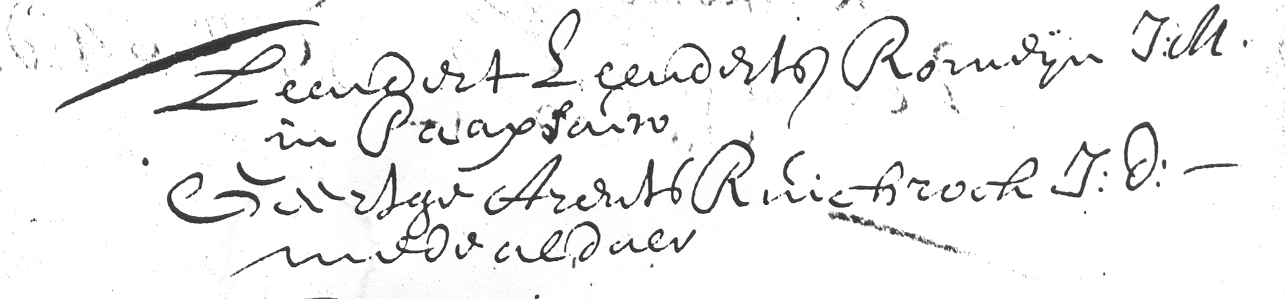 Leendert Leenderts Romeijn J:M.
in Paapsouw
Geertge Arents Ruichrock J:D: –
mede aldaer